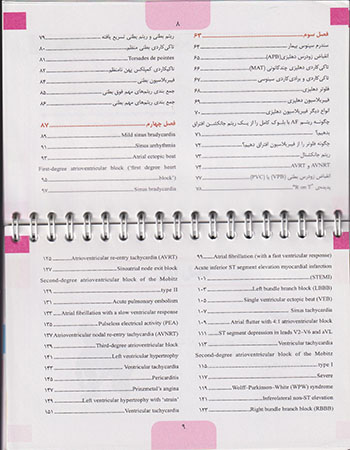 ۸
فصل سوم ۶۳
سندرم سینوسی بیمار ۶۴
انقباض زودرس دهلیزی (APB) ۶۵
تاکی‌کاردی دهلیزی چندکانونی (MAT) ۶۶
تاکی‌کاردی و برادی‌کاردی سینوسی ۶۷
فلوتر دهلیزی ۶۸
فیبریلاسیون دهلیزی ۶۹
انواع دیگر فیبریلاسیون دهلیزی ۷۰
چگونه ریتم AF با بلوک کامل را از یک ریتم جانکشنال افتراق
بدهیم؟ ۷۱
چگونه فلوتر را از فیبریلاسیون افتراق دهیم؟ ۷۲
ریتم جانکشنال ۷۳
AVNRT و AVRT ۷۴
انقباض زودرس بطنی (VPB) یا (PVC) ۷۷
پدیده‌ی "R on T" ۷۸
ریتم بطنی و ریتم بطنی تسریع یافته ۷۹
تاکی‌کاردی بطنی منظم ۸۰
Torsades de pointes ۸۱
تاکی‌کاردی کمپلکس پهن نامنظم ۸۲
فیبریلاسیون بطنی ۸۴
جمع بندی ریتم‌های مهم فوق بطنی ۸۵
جمع بندی ریتم‌های مهم بطنی ۸۶
فصل چهارم ۸۷
Mild sinus bradycardia ۸۹
Sinus arrhythmia ۹۱
Atrial ectopic beat ۹۳
First-degree atrioventricular block ('first degree heart
block') ۹۵
Sinus bradycardia ۹۷
Atrial fibrillation (with a fast ventricular response) ۹۹
Acute inferior ST segment elevation myocardial infarction
(STEMI) ۱۰۱
Left bundle branch block (LBBB) ۱۰۳
Single ventricular ectopic beat (VEB) ۱۰۵
Sinus tachycardia ۱۰۷
Atrial flutter with 4:1 atrioventricular block ۱۰۹
ST segment depression in leads V2–V6 and aVL ۱۱۱
Ventricular tachycardia ۱۱۳
Second-degree atrioventricular block of the Mobitz
type I ۱۱۵
Severe ۱۱۷
Wolff–Parkinson–White (WPW) syndrome ۱۱۹
Inferolateral non-ST elevation ۱۲۱
Right bundle branch block (RBBB) ۱۲۳
Atrioventricular re-entry tachycardia (AVRT) ۱۲۵
Sinoatrial node exit block ۱۲۷
Second-degree atrioventricular block of the Mobitz
type II ۱۲۹
Acute pulmonary embolism ۱۳۱
Atrial fibrillation with a slow ventricular response ۱۳۳
Pulseless electrical activity (PEA) ۱۳۵
Atrioventricular nodal re-entry tachycardia (AVNRT) ۱۳۷
Third-degree atrioventricular block ۱۳۹
Left ventricular hypertrophy ۱۴۱
Ventricular tachycardia ۱۴۳
Pericarditis ۱۴۵
Prinzmetal's angina ۱۴۷
Left ventricular hypertrophy with 'strain' ۱۴۹
Ventricular tachycardia ۱۵۱
۹